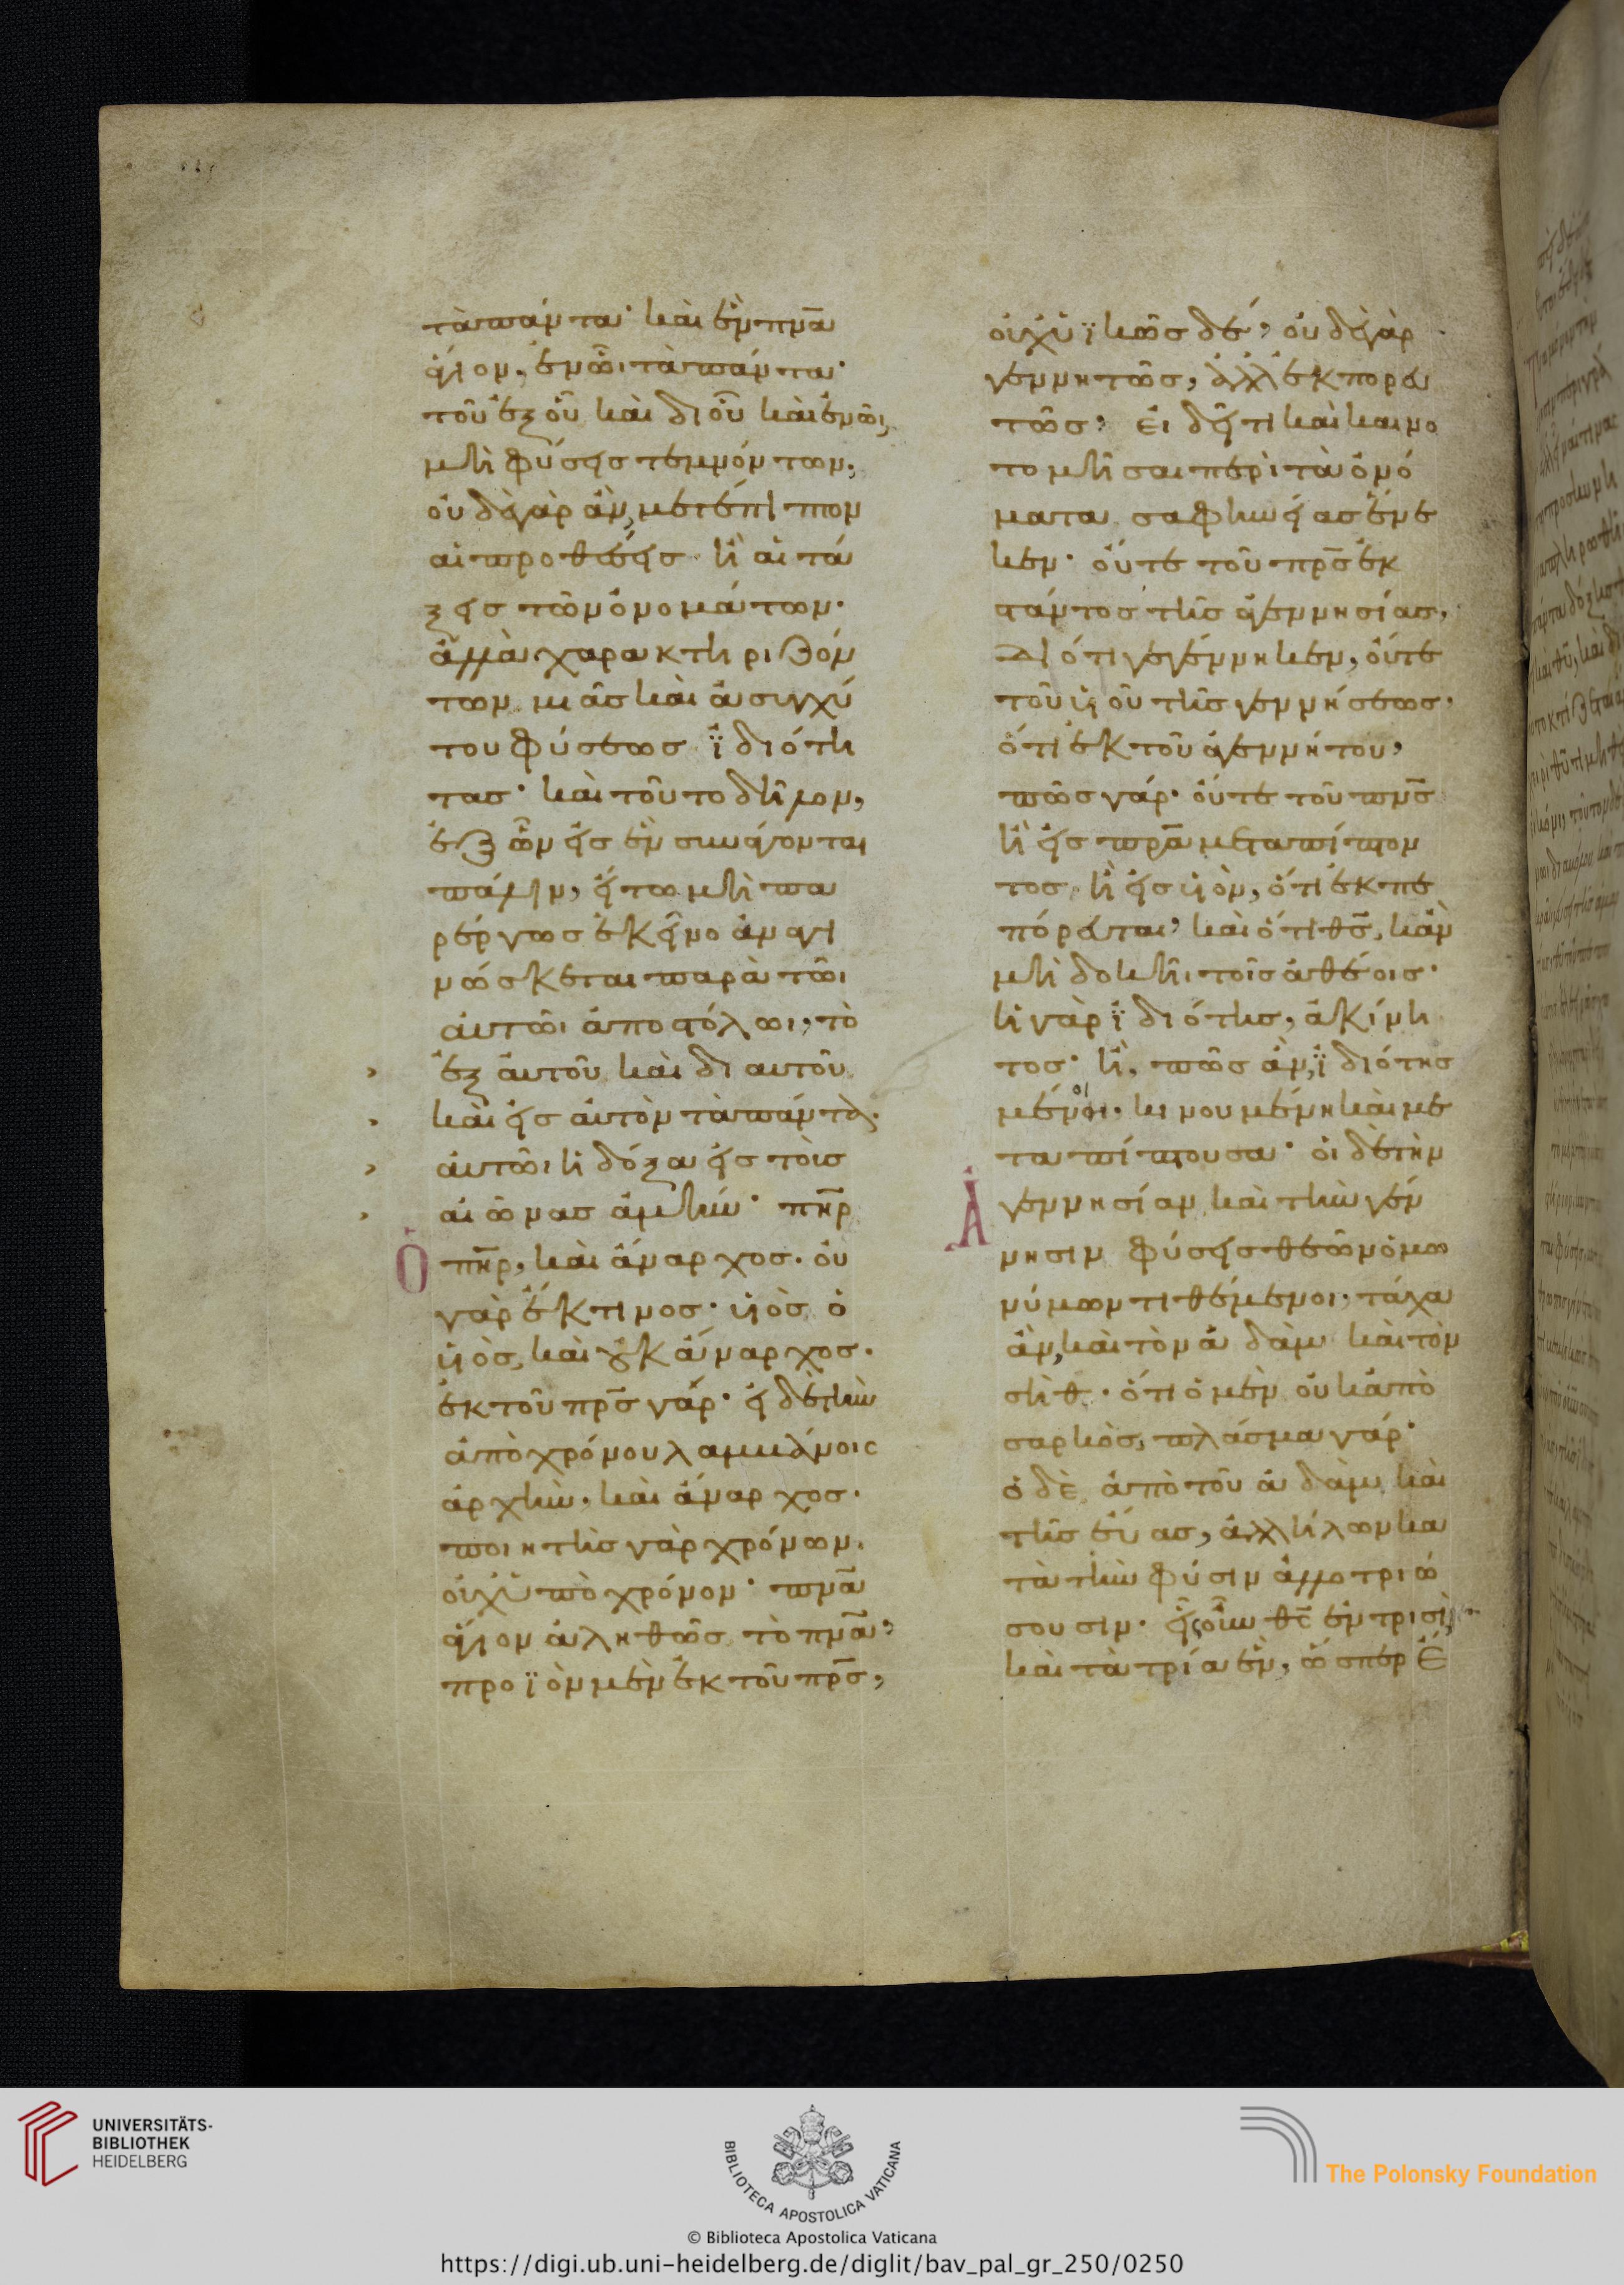 τὰ πάντα· καὶ ἓν πνᾶ
ἅγιον, ἐν ὧι τὰ πάντα·
τοῦ ἐξ οὗ καὶ δι οὗ καὶ ἐν ὧι,
μὴ φύσεις τεμνόντων,
οὐδὲ γὰρ ἂν, μετέπιπτον
αἱ προθέσεις ἢ αἱ τά
ξεις τῶν ὀνομάτων·
ἀλλὰ χαρακτηριζόν
των μιᾶς καὶ ἀσυγχύ
του φύσεως ἰδιότη
τας· καὶ τοῦτο δῆλον,
ἐξ ὧν εἰς ἓν συνάγονται
πάλιν, εἴ τω μὴ πα
ρέργως ἐκεῖνο ἀναγι
νώσκεται παρὰ τῶι
αὐτῶι ἀποστόλωι, τὸ
ἐξ αὐτοῦ καὶ δι αὐτοῦ
καὶ εἰς αὐτὸν τὰ πάντα·
αὐτῶι ἡ δόξα εἰς τοὺς
αἰῶνας ἀμήν· πηρ
ὁ πηρ, καὶ ἄναρχος. οὐ
γὰρ ἔκ τινος· υἱὸς ὁ
υἱὸς, καὶ οὐκ ἄναρχος.
ἐκ τοῦ πρς γάρ· εἰ δὲ τὴν
ἀπὸ χρόνου λαμβάνοις
ἀρχὴν, καὶ ἄναρχος.
ποιητὴς γὰρ χρόνων.
οὐχ ὑπὸ χρόνον· πνᾶ
ἅγιον ἀληθῶς τὸ πνᾶ·
προϊὸν μὲν ἐκ τοῦ πρς,
οὐχ υἱκῶς δέ, οὐδὲ γὰρ
γεννητῶς, ἀλλ ἐκπορευ
τῶς· εἰ δεῖ τι καὶ καινο
τομῆσαι περὶ τὰ ὀνό
ματα σαφηνείας ἕνε
κεν· οὔτε τοῦ πρς ἐκ
στάντος τῆς ἀγεννησίας,
διότι γεγέννηκεν, οὔτε
τοῦ υἱοῦ τῆς γεννήσεως·
ὅτι ἐκ τοῦ ἀγεννήτου,
πῶς γάρ· οὔτε τοῦ πνς
ἢ εἰς πρα μεταπίπτον
τος, ἢ εἰς υἱὸν, ὅτι ἐκπε
πόρευται, καὶ ὅτι θς, κἂν
μὴ δοκῆι τοῖς ἀθέοις·
ἡ γὰρ ἰδιότης, ἀκίνη
τος· ἢ, πῶς ἂν, ἰδιότης
μένοι· κινουμένη καὶ με
ταπίπτουσα· οἱ δὲ τὴν
ἀγεννησίαν καὶ τὴν γέν
νησιν φύσεις θεῶν ὁμω
νύμων τιθέμενοι, τάχα
ἂν, καὶ τὸν ἀδὰμ καὶ τὸν
σὴθ. ὅτι ὁ μὲν οὐκ ἀπὸ
σαρκὸς, πλάσμα γάρ·
ὁ δὲ ἀπὸ τοῦ ἀδὰμ καὶ
τῆς εὔας, ἀλλήλων κα
τὰ τὴν φύσιν ἀλλοτριώ
σουσιν· εἷς οὖν θς ἐν τρισὶ,
καὶ τὰ τρία ἓν, ὥσπερ ἔ
UNIVERSITÄTS-
BIBLIOTHEK
HEIDELBERG
BIBLIOTECA APOSTOLICA VATICANA
The Polonsky Foundation
© Biblioteca Apostolica Vaticana
https://digi.ub.uni-heidelberg.de/diglit/bav_pal_gr_250/0250